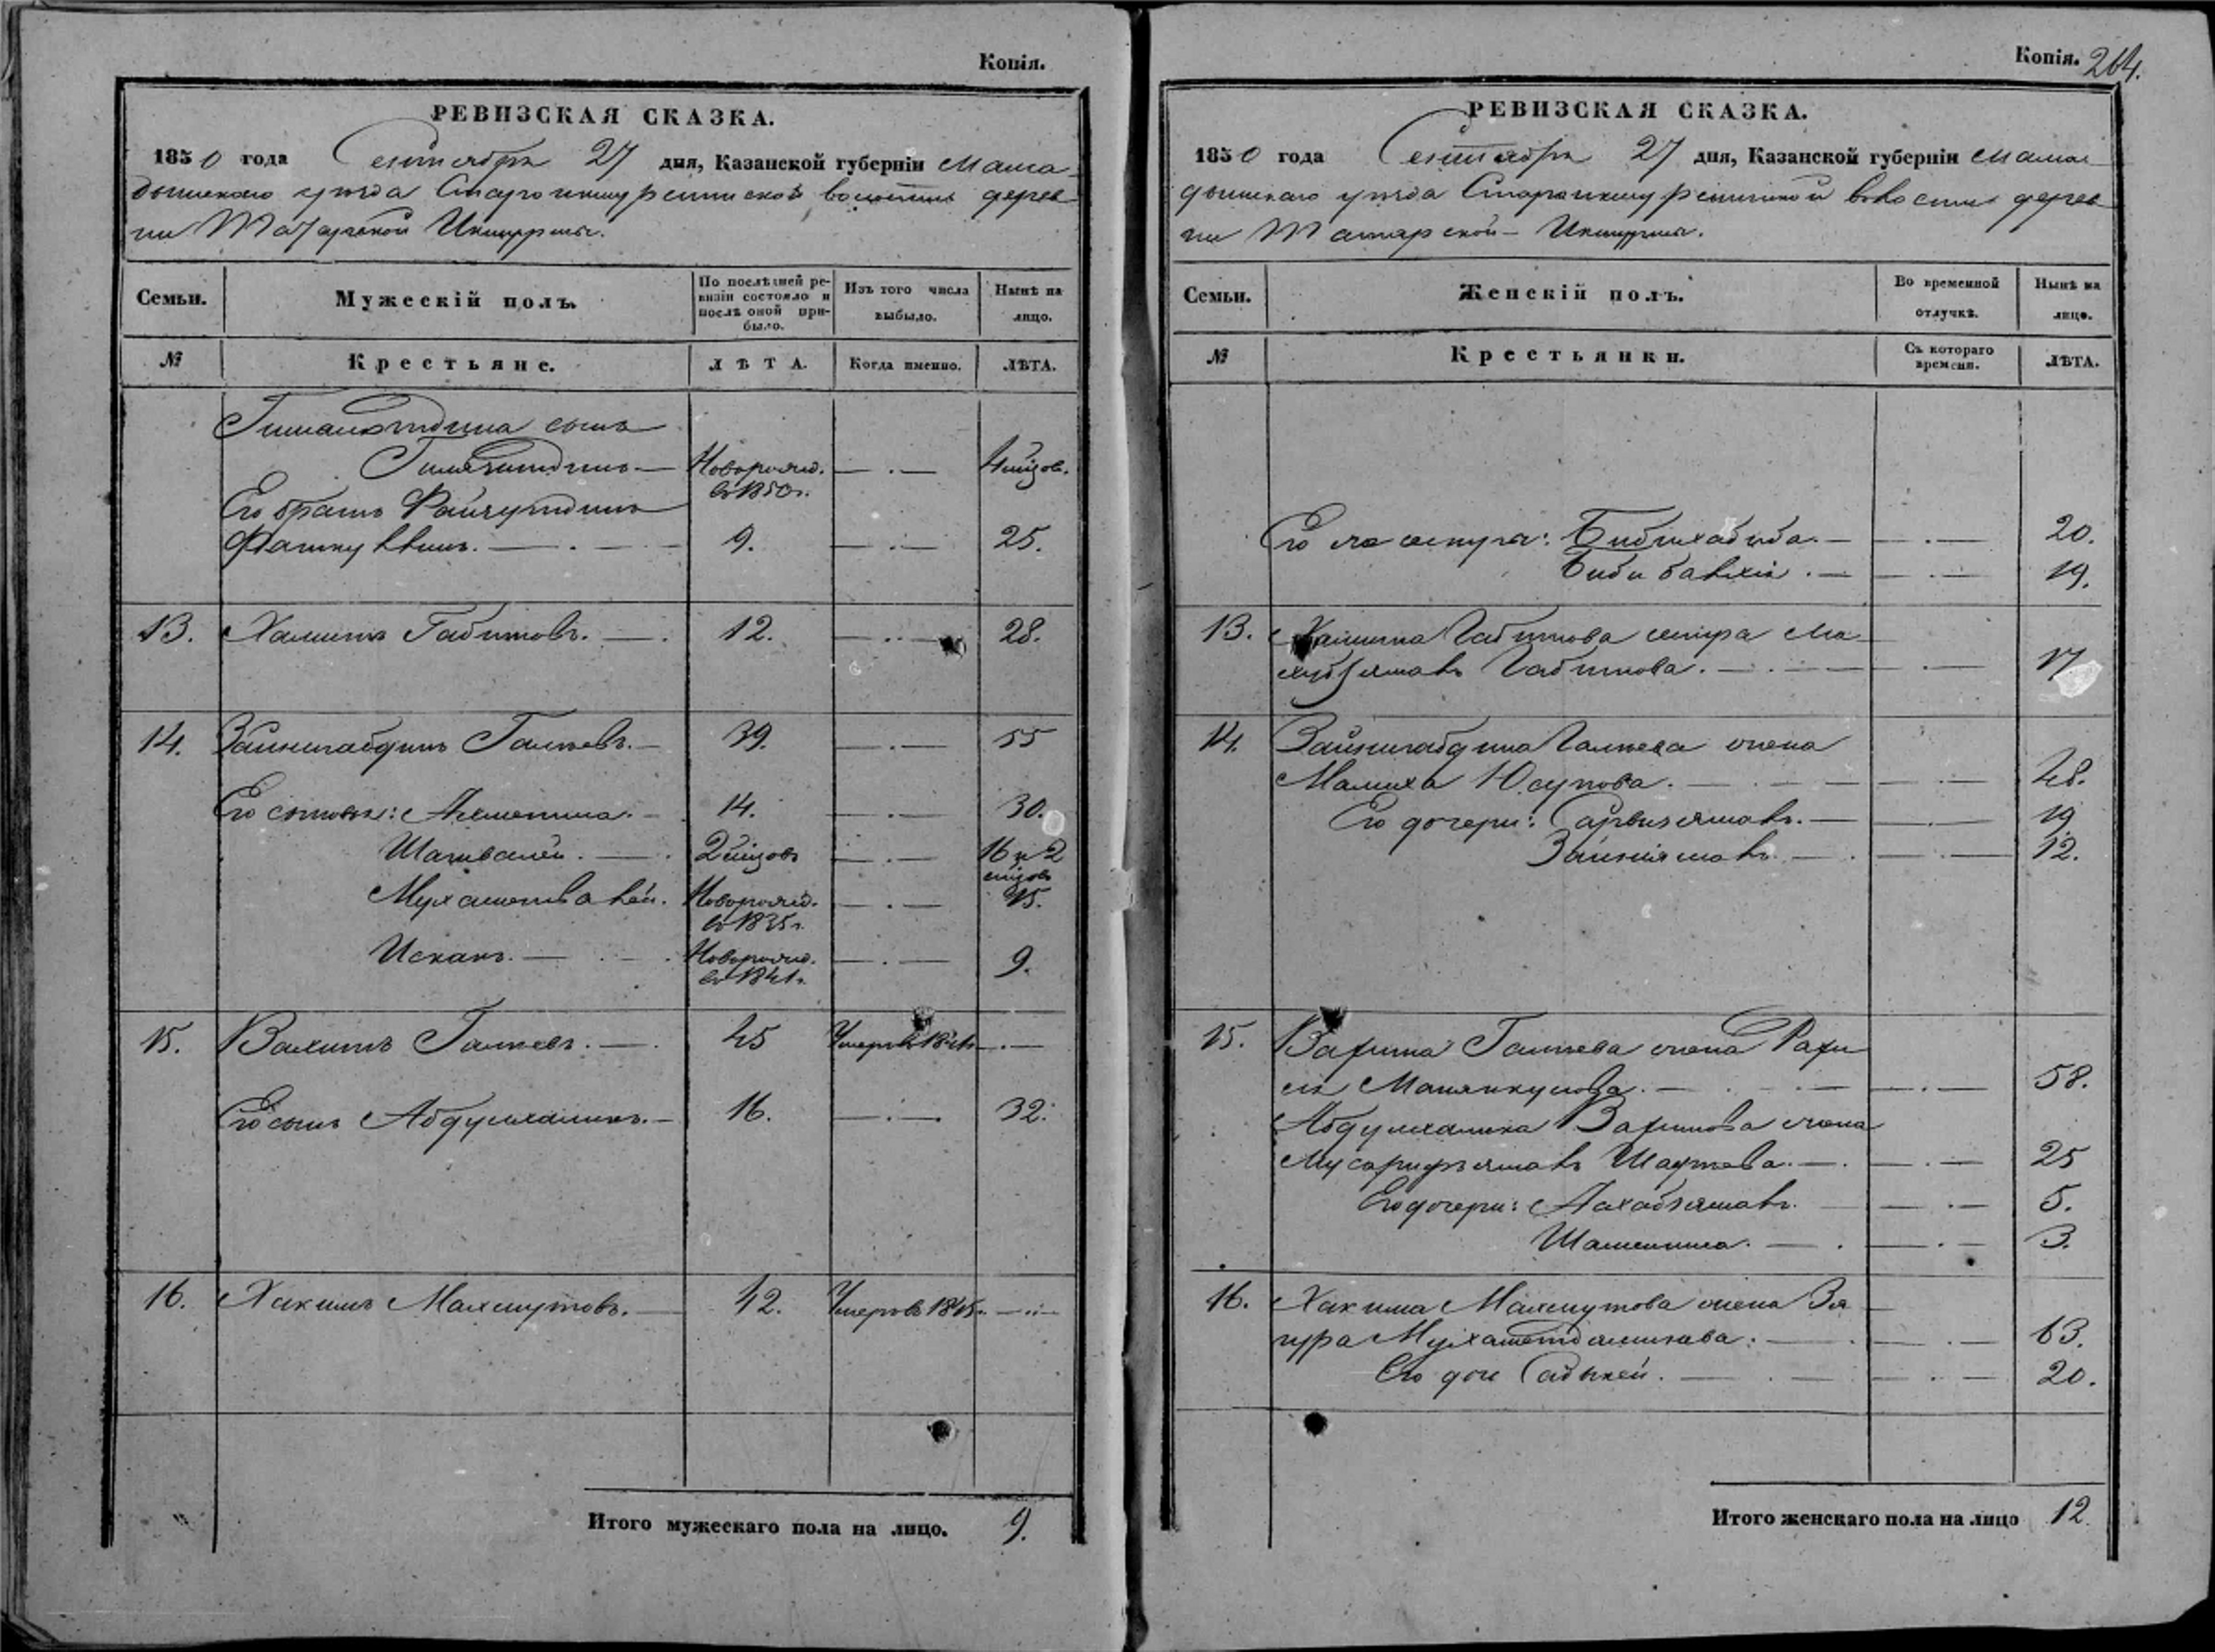 Копія.
РЕВИЗСКАЯ СКАЗКА.
1850 года Сентября 27 дня, Казанской губерніи Мама-
дышскаго уѣзда Староикшурминской волости дерев
ни Татарской Икшурмы.
Семьи. Мужескій полъ. По послѣдней ре-визіи состояло и послѣ оной при-было. Изъ того числа выбыло. Нынѣ на лицо.
№ Крестьяне. ЛѢТА. Когда именно. ЛѢТА.
сынъ
Новорожд. — . —
въ 1850 г.
Его братъ
9. — . — 25.
13. Хамитъ Габитовъ. — . 12. — .. — 28.
14. Зайнигабдинъ Галѣевъ. — 39. — . — 55
Его сыновья: 14. — . — 30.
Шагивалей. — . 2 мѣсцовъ — . — 16 и 2
мѣсцов
Мухаметвалей. Новорожд. — . — 15.
въ 1835 г.
Исхакъ. — . — . Новорожд. — . — 9.
въ 1841 г.
15. Вахитъ Галѣевъ. — . 45 Умеръ въ — . —
Его сынъ Абдулхаликъ. — 16. — . — 32.
16. Хакимъ Махмутовъ. — 42. Умеръ въ 1845 г. — .. —
Итого мужескаго пола на лицо. 9.
Копія. 264.
РЕВИЗСКАЯ СКАЗКА.
1850 года Сентября 27 дня, Казанской губерніи Мама-
дышскаго уѣзда Староикшурминской волости дерев
ни Татарской Икшурмы.
Семьи. Женскій полъ. Во временной отлучкѣ. Нынѣ на лицо.
№ Крестьянки. Съ котораго времени. ЛѢТА.
Его же сестры: Бибихабиба. — — . — 20.
Биби . — — . — 19.
13. Хамита Габитова сестра Ма
Габитова. — . — — . — 17
14. Зайнигабдина Галѣева жена
Малиха Юсупова. — . — — . — 48.
Его дочери: — — . — 19
— . — . — 12.
15. Вахита Галѣева жена Рахи
ля — . — — . — 58.
Абдулхалика Вахитова жена
— . — . — 25
Его дочери: — — . — 5.
— . — . — 3.
16. Хакима Махмутова жена Зя
гура — . — . — 63.
Его дочь Садыкей. — . — — . — 20.
Итого женскаго пола на лицо 12.